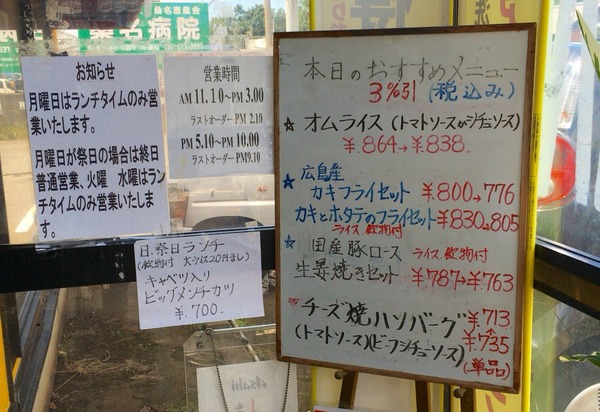 桑名恵風会
桑名病院
お知らせ
月曜日はランチタイムのみ営
業いたします。
月曜日が祭日の場合は終日
普通営業、火曜　水曜はラン
チタイムのみ営業いたしま
す。
営業時間
AM 11.10～PM 3.00
ラストオーダー PM 2.10
PM 5.10～PM 10.00
ラストオーダー PM9.10
日.祭日ランチ
(飲物付 20円まし)
キャベツ入り
ビッグメンチカツ
¥.700.
本日のおすすめメニュー
3%引 (税込み)
★ オムライス (トマトソースorシチューソース)
¥.864→¥.838.
★ 広島産
カキフライセット ¥.800→776
カキとホタテのフライセット ¥.830→805
ライス 飲物付
★ 国産豚ロース ライス 飲物付
生姜焼きセット ¥.787→¥763
チーズ焼ハンバーグ ¥.713
(トマトソース)(ビーフシチューソース) ¥.735
(単品)
Asahi